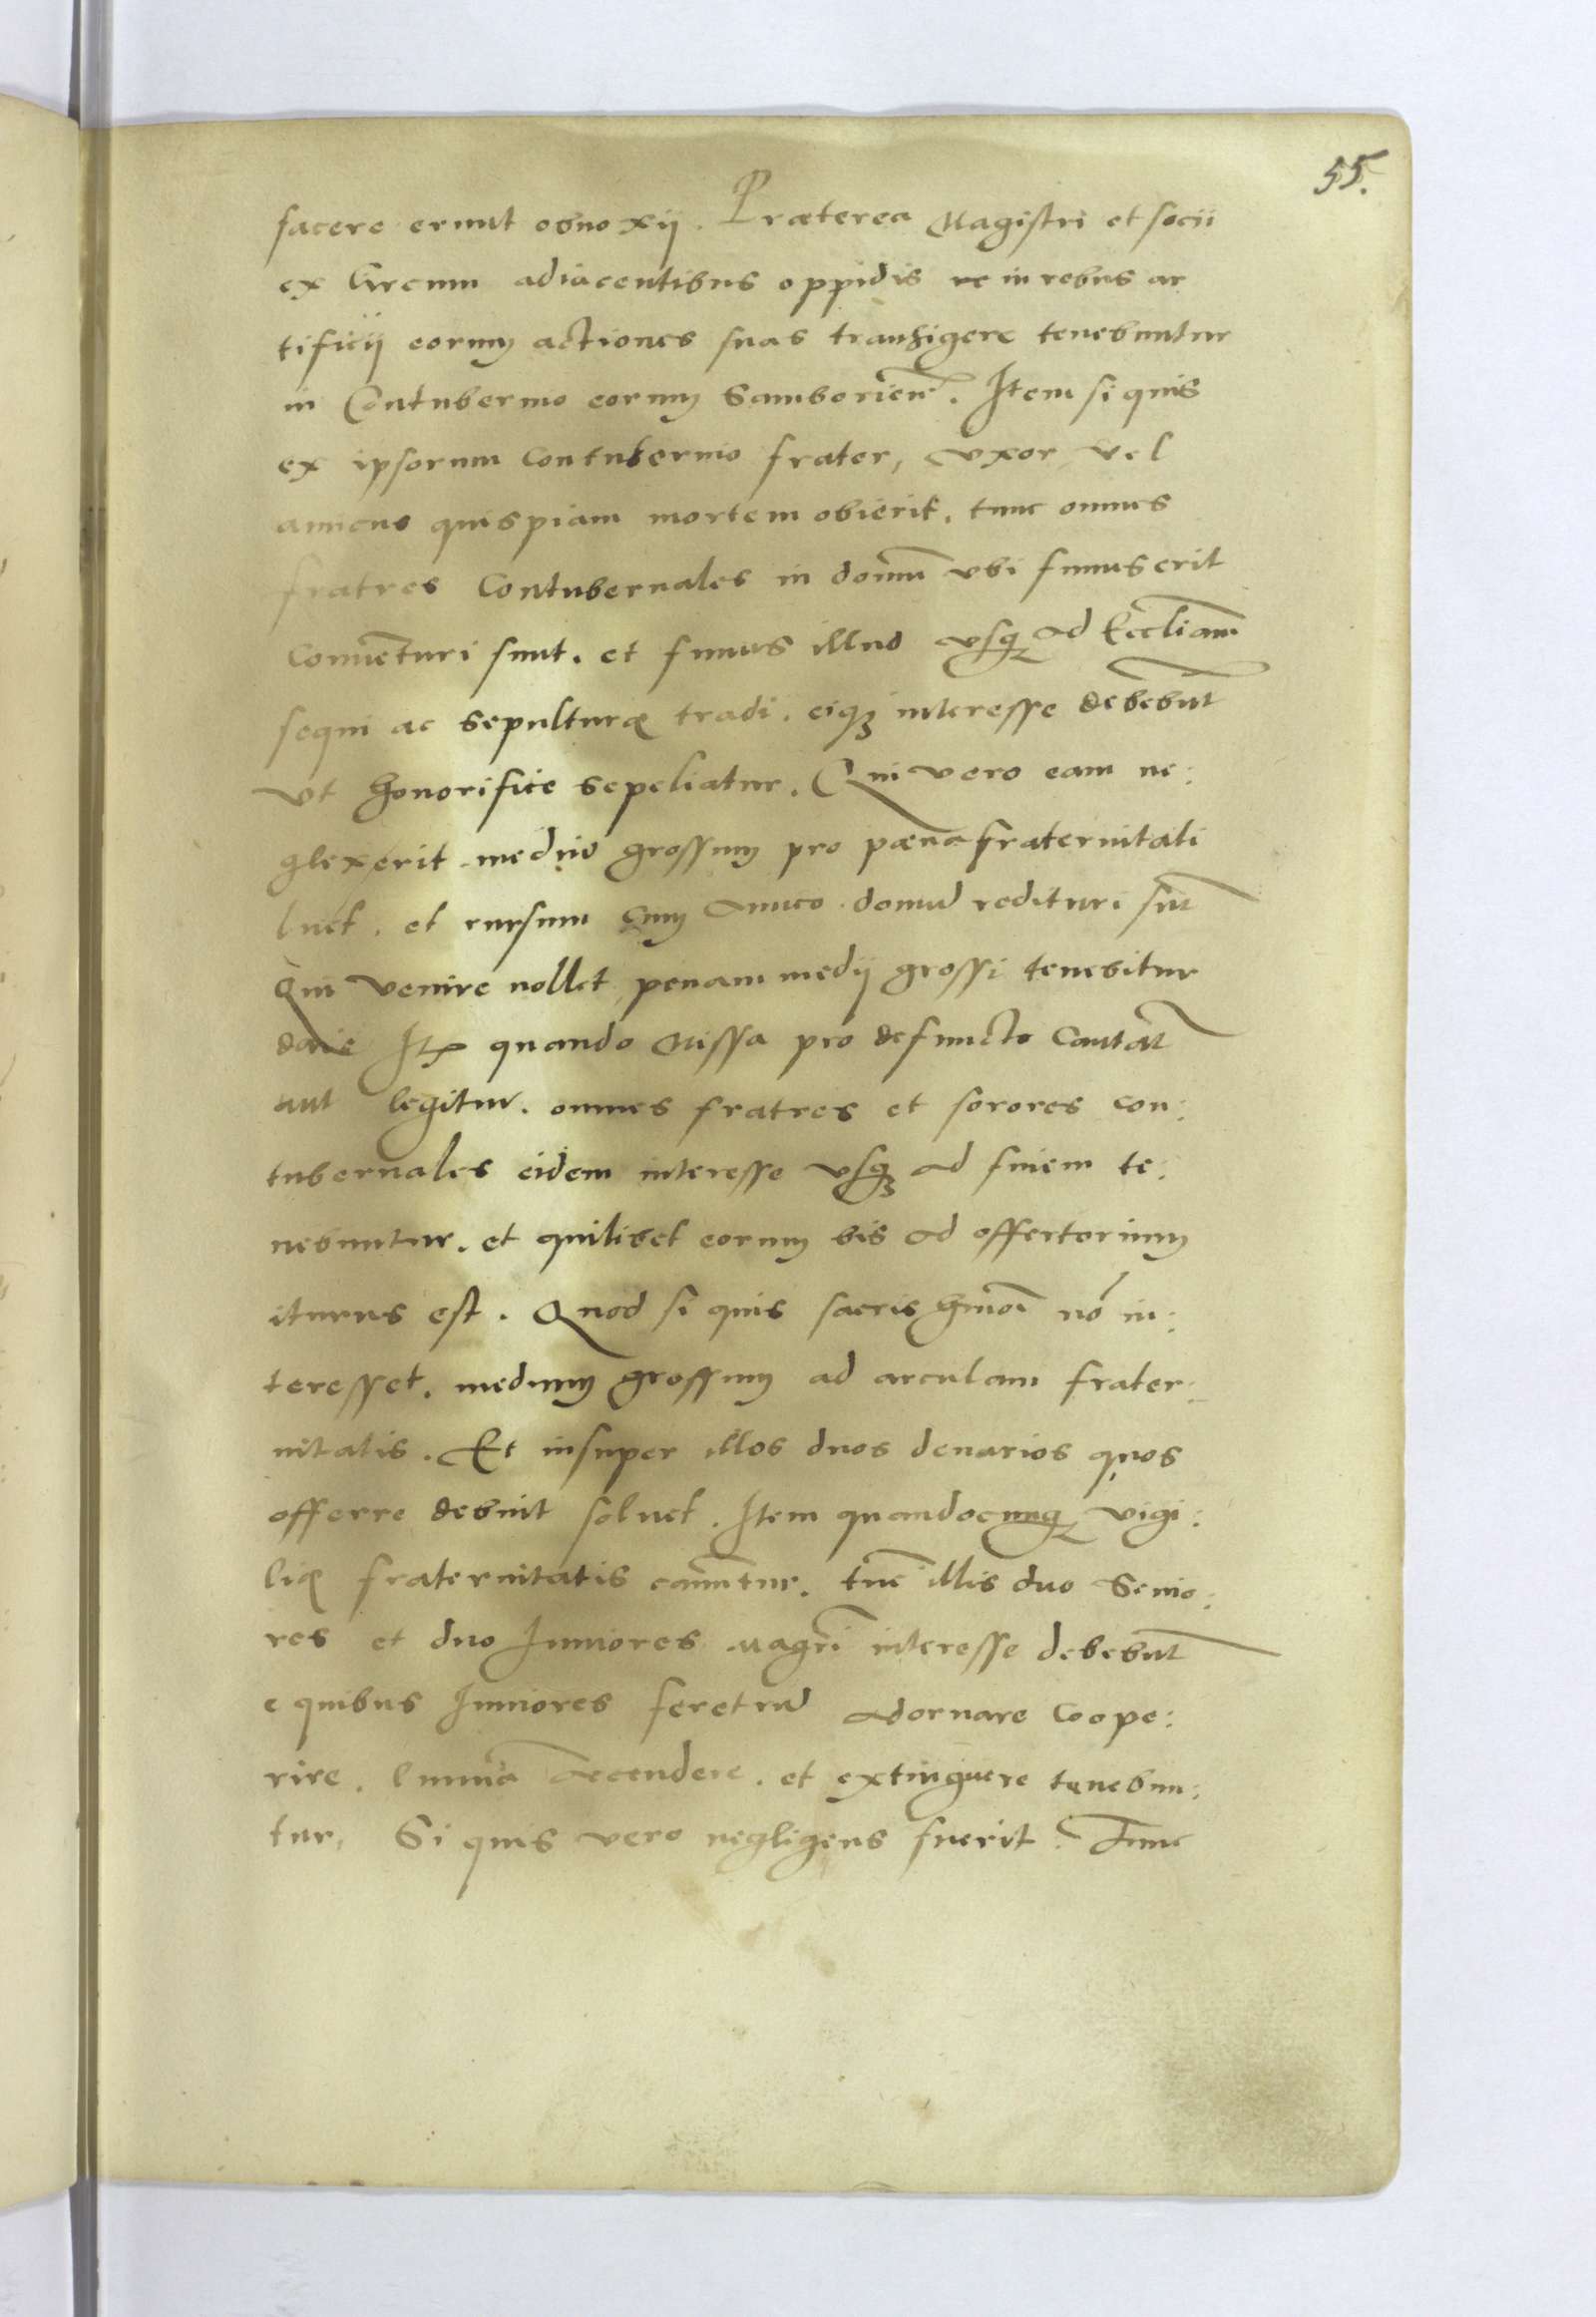 55.
facere erunt obnoxij. Præterea Magistri et socii
ex circum adiacentibus oppidis in rebus ar
tificij eorum actiones suas transigere tenebuntur
in Contubernio eorum Samborieñ. Item si quis
ex ipsorum contubernio frater, vxor vel
amicus quispiam mortem obierit, tunc omnes
fratres Contubernales in domū vbi funus erit
conuēturi sunt. et funus illud vsqꝫ ad Eccliam̄
sequi ac sepulturæ tradi. eiqꝫ interesse debebūt
vt honorifice sepeliatur. Qui vero eam ne:
glexerit mediū grossum pro pæna fraternitati
luet. et rursum cum amico domū redituri sūt
Qui venire nollet penam medij grossi tenebitur
dare Itē quando Missa pro defuncto Cantat̄
aut legitur. omnes fratres et sorores con:
tubernales eidem interesse vsqꝫ ad finem te:
nebuntur. et quilibet eorum bis ad offertorium
iturus est. Quod si quis sacris hmōi nō in:
teresset. medium grossum ad arculam frater:
nitatis. Et insuper illos duos denarios quos
offerre debuit soluet. Item quandocunqꝫ vigi:
liæ fraternitatis canūtur. tūc illis duo Senio:
res et duo Iuniores magrī interesse debebūt
e quibus Iuniores feretrū adornare coope:
rire. lumīa accendere. et extinguere tenebun:
tur, Si quis vero negligens fuerit. Tunc